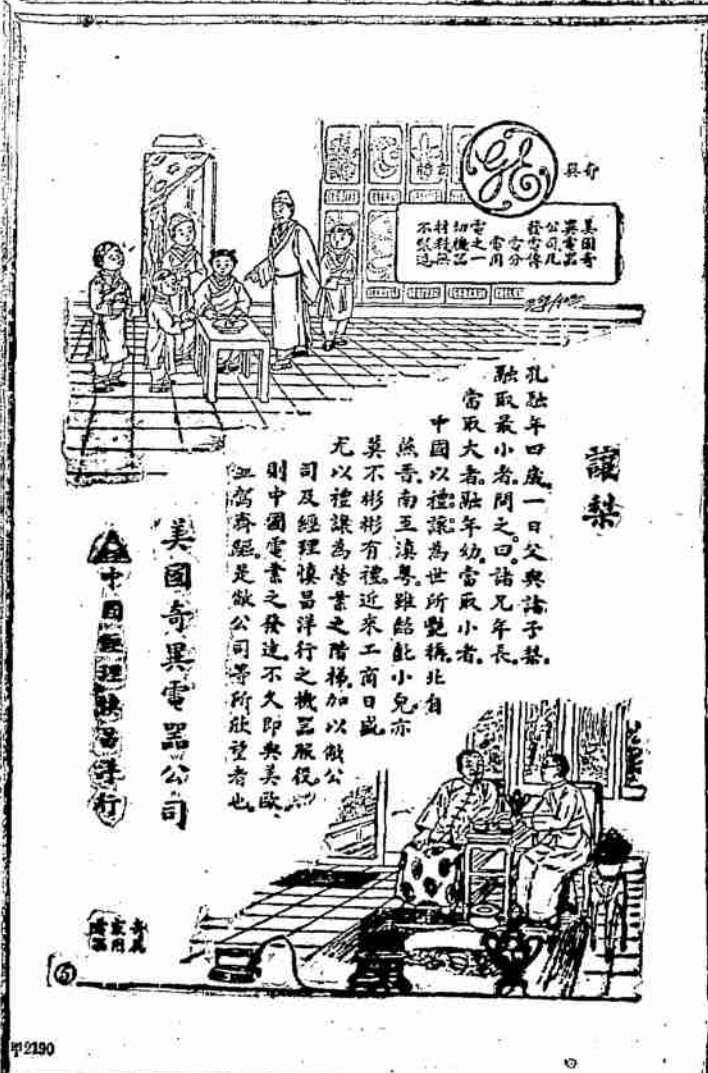 奇異
美國奇
異電器
公司凡
發電傳
電分
電用
電之一
切機器
材料無
不製造
讓梨
孔融年四歲。一日父與諸子梨。
融取最小者。問之。曰。諸兄年長。
當取大者。融年幼。當取小者。
中國以禮讓為世所艷稱。北自
燕晋。南至滇粤。雖齠齔小兒。亦
莫不彬彬有禮。近來工商日盛。
尤以禮讓為營業之階梯。加以敝公
司及經理慎昌洋行之機器服役。
則中國電業之發達。不久即與美歐
並駕齊驅。是敝公司等所欣望者也。
美國奇異電器公司
中國經理慎昌洋行
奇異
家用
電器
5
甲2190